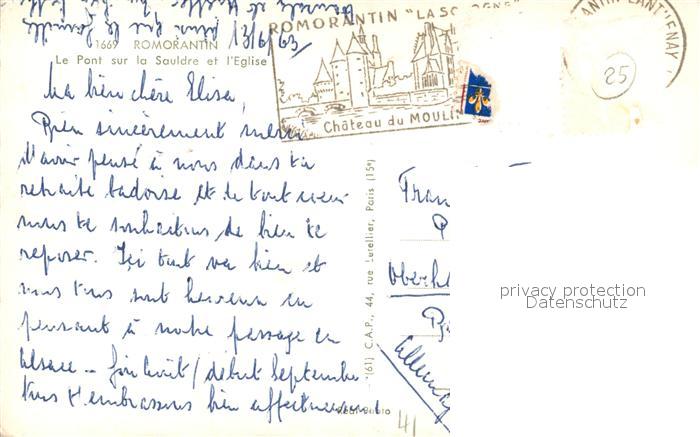 13/6/63
1669 ROMORANTIN
Le Pont sur la Sauldre et l'Eglise
ROMORANTIN "LA SO GNE"
Château du MOULI
LANTHENAY
25
Ma bien chère Elisa,
Bien sincèrement merci
d'avoir pensé à nous dans ta
retraite badoise et de tout coeur
nous te souhaitons de bien te
reposer. Ici tout va bien et
nous tous sont heureux en
pensant à notre passage en
Alsace -- fin Août / début Septembre
Tous t'embrassons bien affectueusement
(61) C.A.P., 44, rue Lurellier, Paris (15e)
Oberk
Allemag
privacy protection
Datenschutz
41